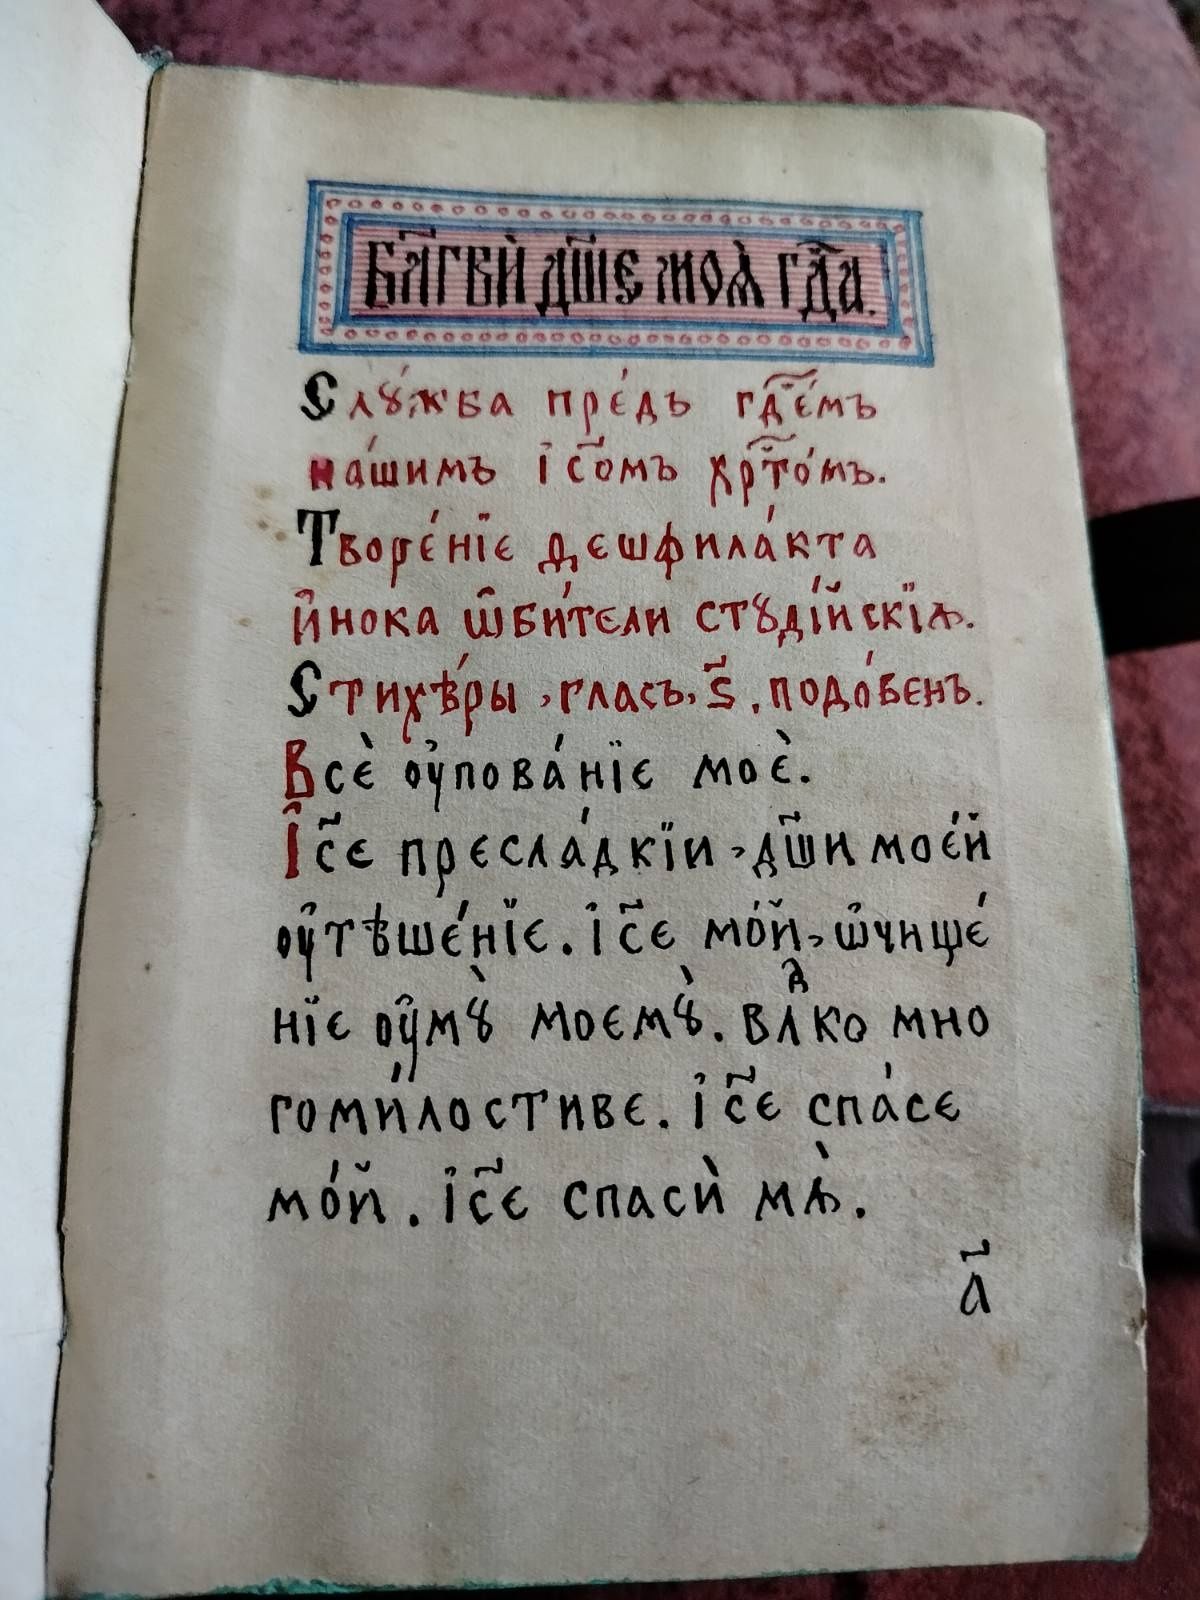 Бл҃гвѝ дш҃е моѧ̀ гдⷭ҇а.
Слꙋ́жба пре́дъ гдⷭ҇е́мъ
на́шимъ і҆с҃омъ хрⷭ҇то́мъ.
Творе́нїе де́ѡфила́кта
и҆́нока ѡ҆би́тели стꙋді́йскїѧ.
Стихѣ́ры, гласъ, ѕ҃. подо́бенъ.
Всѐ ᲂу҆пова́нїе моѐ.
І҆с҃е пресла́дкїи, дш҃и мое́й
ᲂу҆тѣше́нїе. і҆с҃е мо́й, ѡ҆чище́
нїе ᲂу҆мꙋ̀ моемꙋ̀. влⷣко мно
гоми́лостиве. і҆с҃е спа́се
мо́й. і҆с҃е спасѝ мѧ̀.
а҃